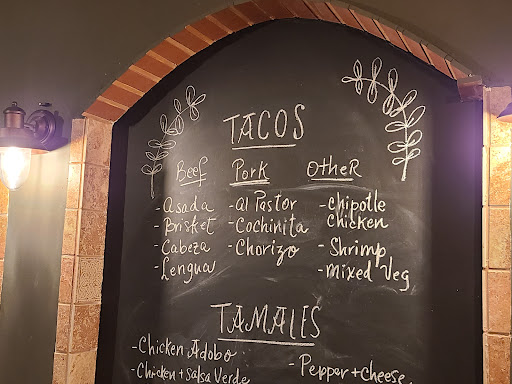 TACOS
Beef
- Asada
- Brisket
- Cabeza
- Lengua
Pork
- Al Pastor
- Cochinita
- Chorizo
Other
- Chipotle
chicken
- Shrimp
- Mixed Veg
TAMALES
- Chicken Adobo
- Chicken + Salsa Verde
- Pepper + Cheese